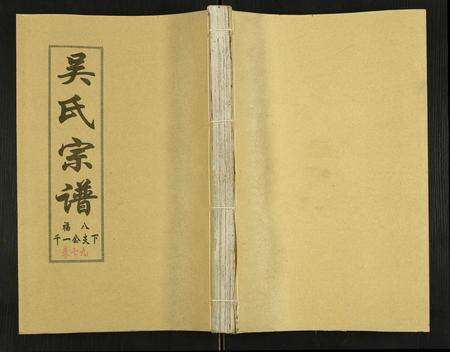 吴氏宗谱
福八
千一公支下
卷七九